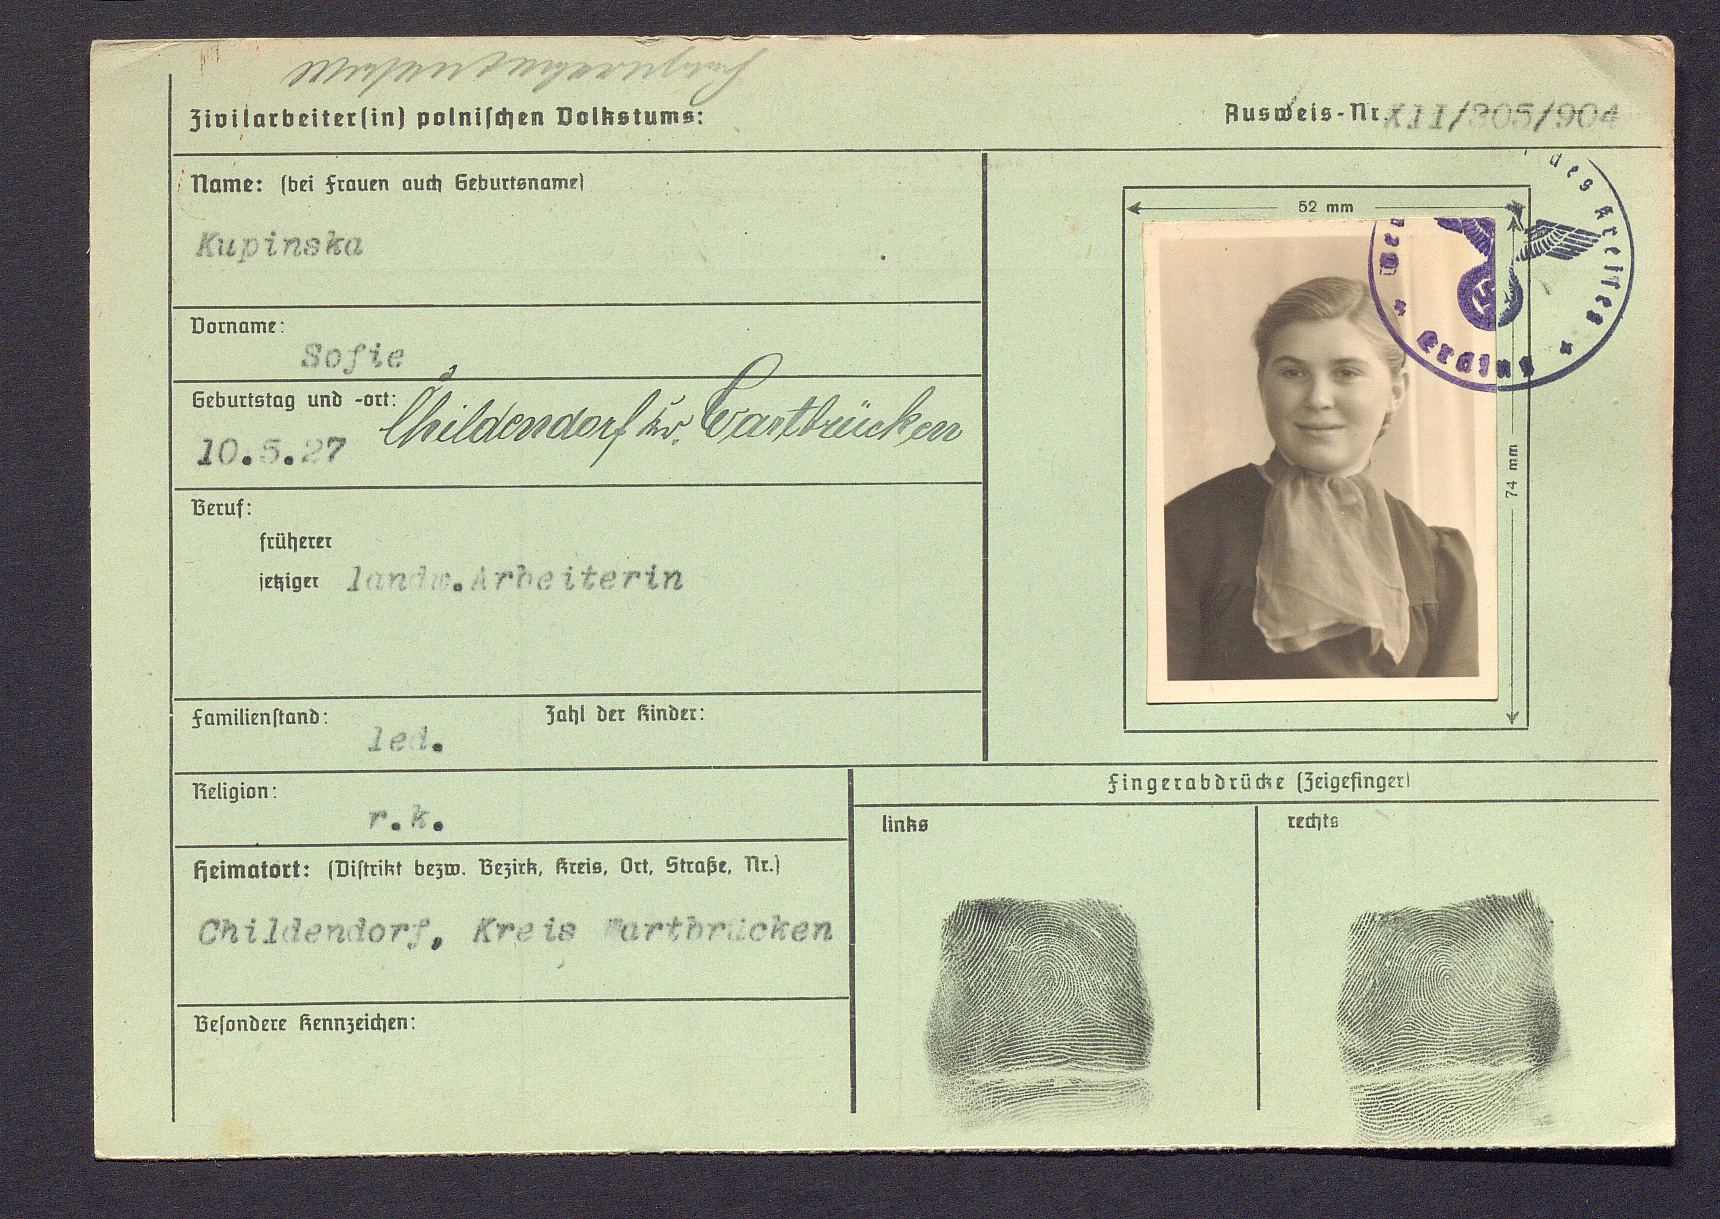 Zivilarbeiter(in) polnischen Volkstums:
Ausweis-Nr. XII/305/904
Name: (bei Frauen auch Geburtsname)
Kupinska
Vorname:
Sofie
Geburtstag und -ort:
10.5.27 Childendorf Kr. Wartbrücken
Beruf:
früherer
jetziger landw.Arbeiterin
Familienstand: Zahl der Kinder:
led.
Religion:
r.k.
Heimatort: (Distrikt bezw. Bezirk, Kreis, Ort, Straße, Nr.)
Childendorf, Kreis Wartbrücken
Besondere Kennzeichen:
52 mm
74 mm
des Kreises
* Erding *
Fingerabdrücke (Zeigefinger)
links
rechts